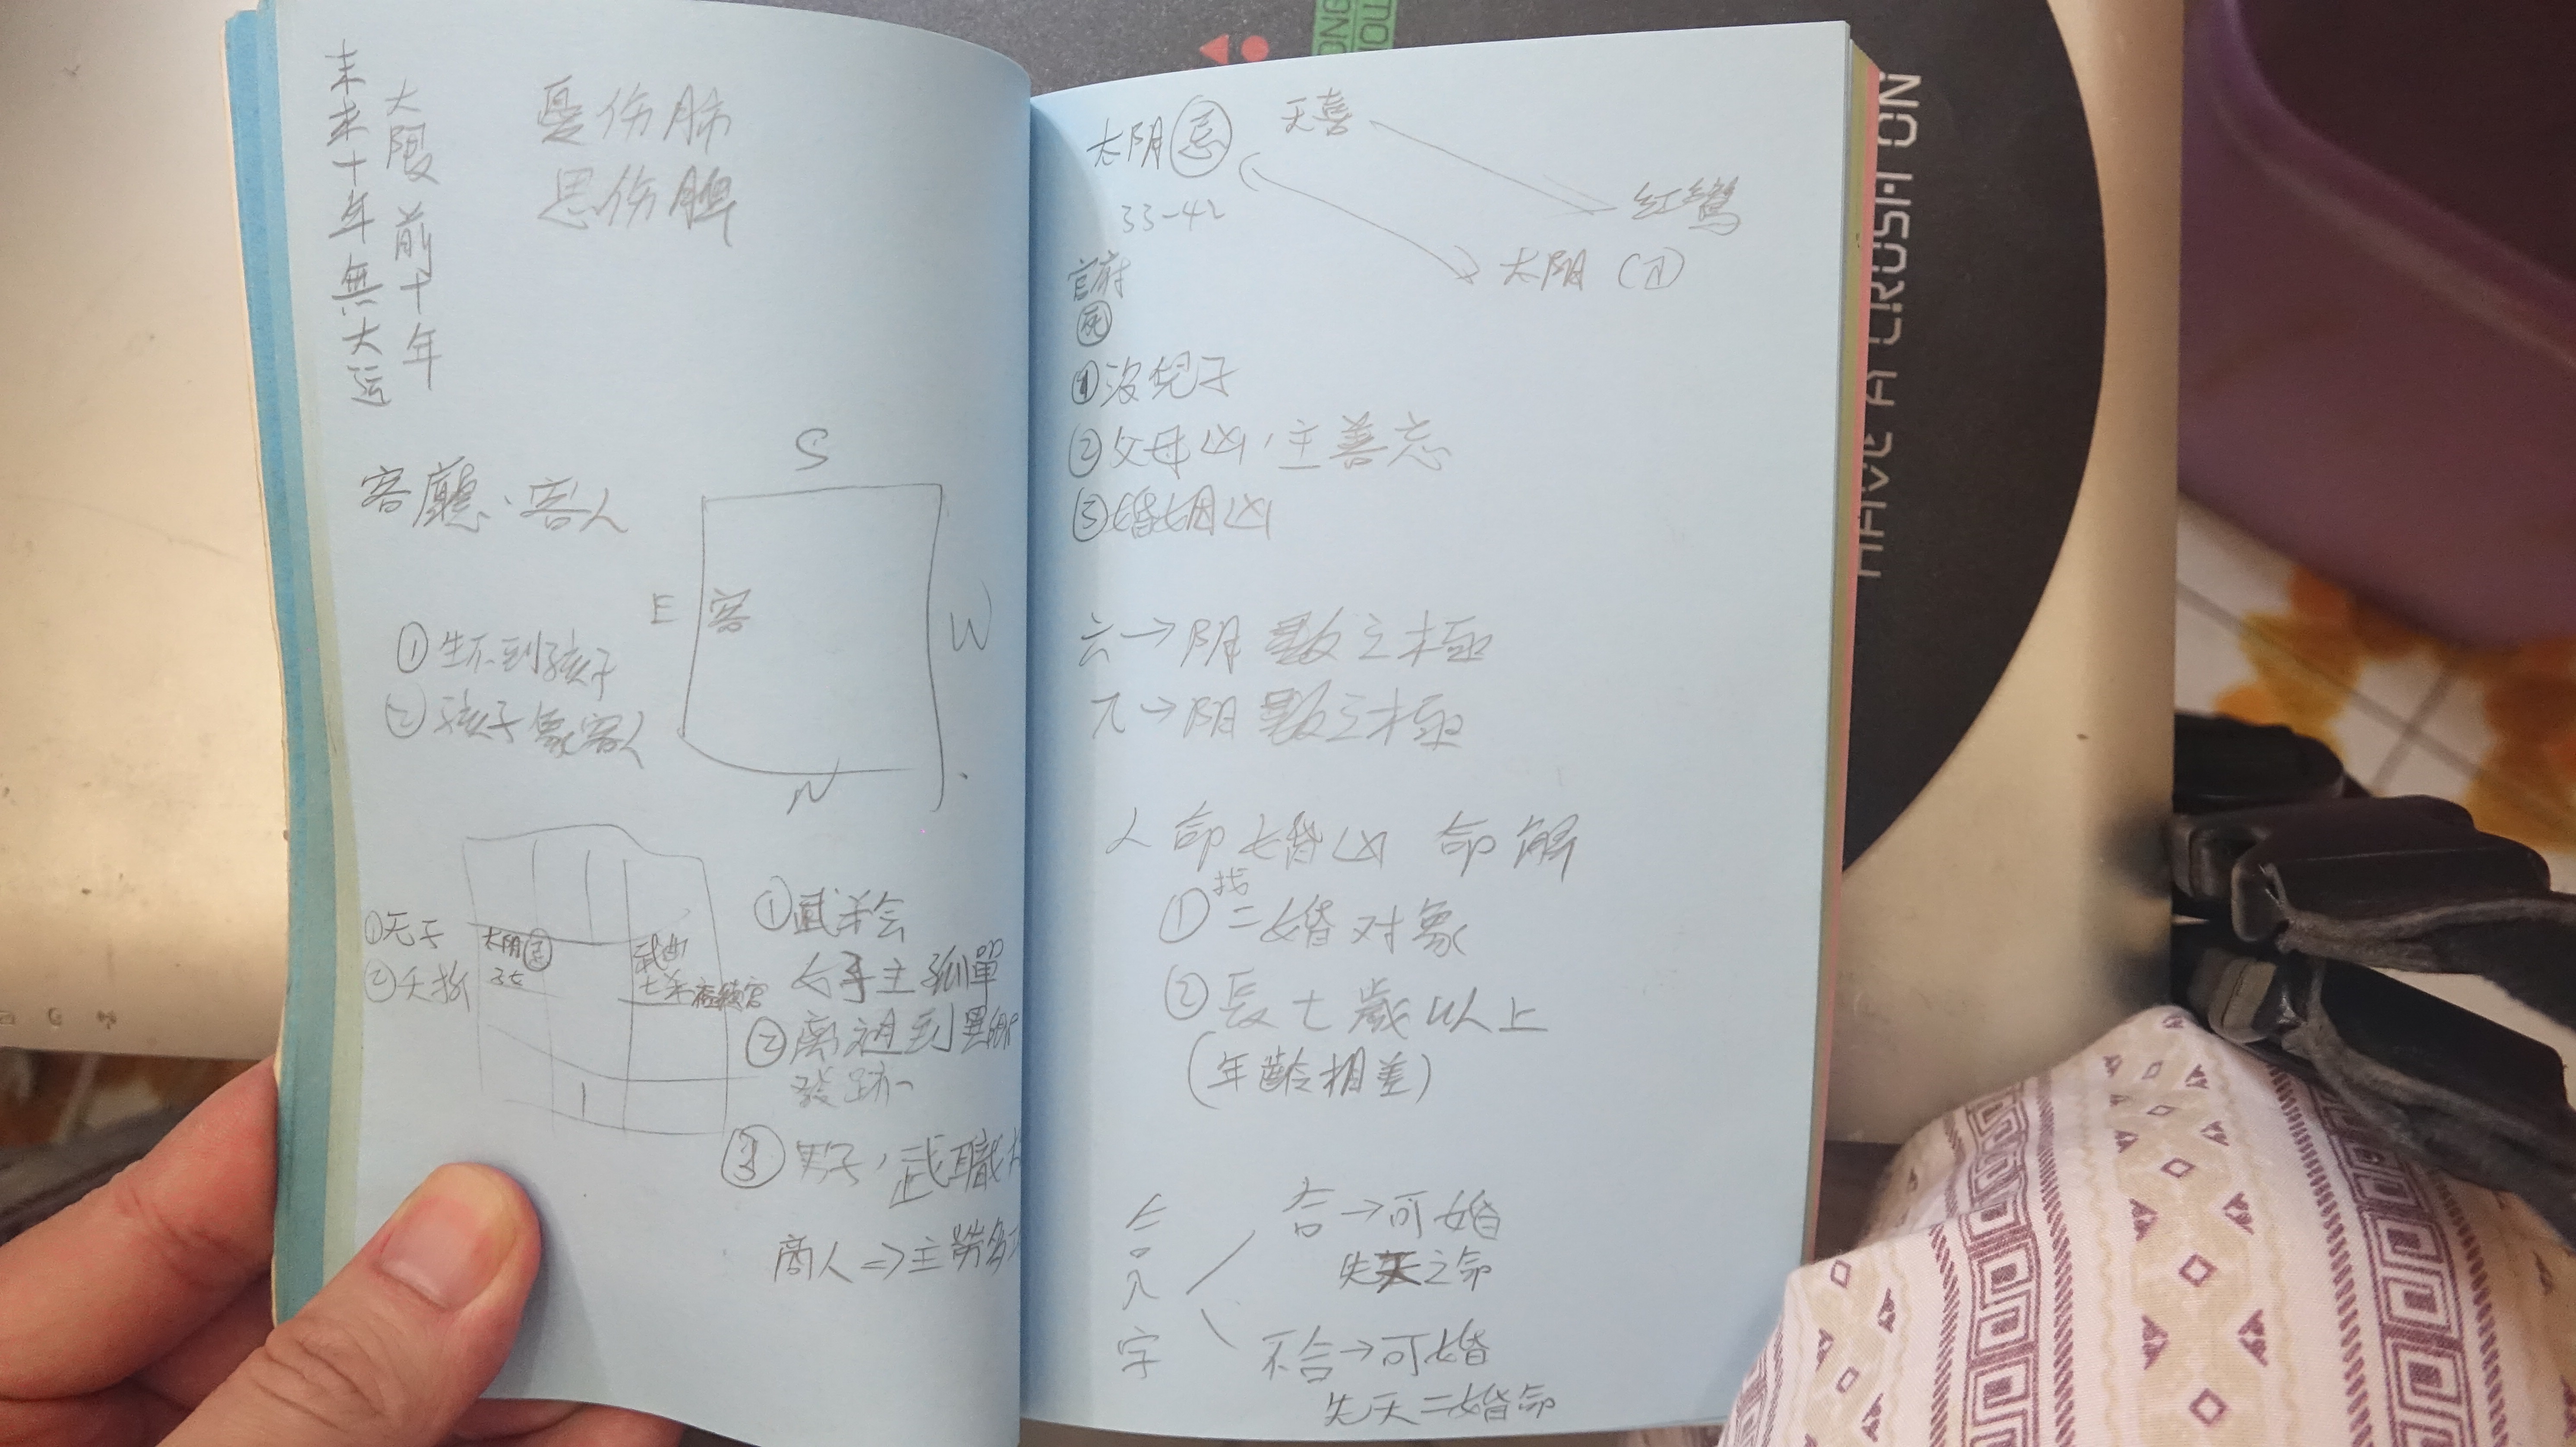 大限 前十年
未来十年無大运
憂伤肺
思伤脾
客廳、客人
S
E
客
W
N
①生不到孩子
②孩子象客人
①无子
②夭折
太阴忌
35
武曲
七杀
①武羊会
女子主孤單
②离道到異
發跡
③男子,武職
商人⇒主勞
太阴忌
33-42
天喜
红鸞
太阴
官府
死
①没兒子
②父母凶,主善忘
③婚姻凶
六→阴數之極
→阴數之極
人命婚凶 命解
①找二婚对象
②長七歲以上
(年齡相差)
八
字
合→可婚
先天之命
不合→可婚
先天二婚命
HAVE A CRUSH ON